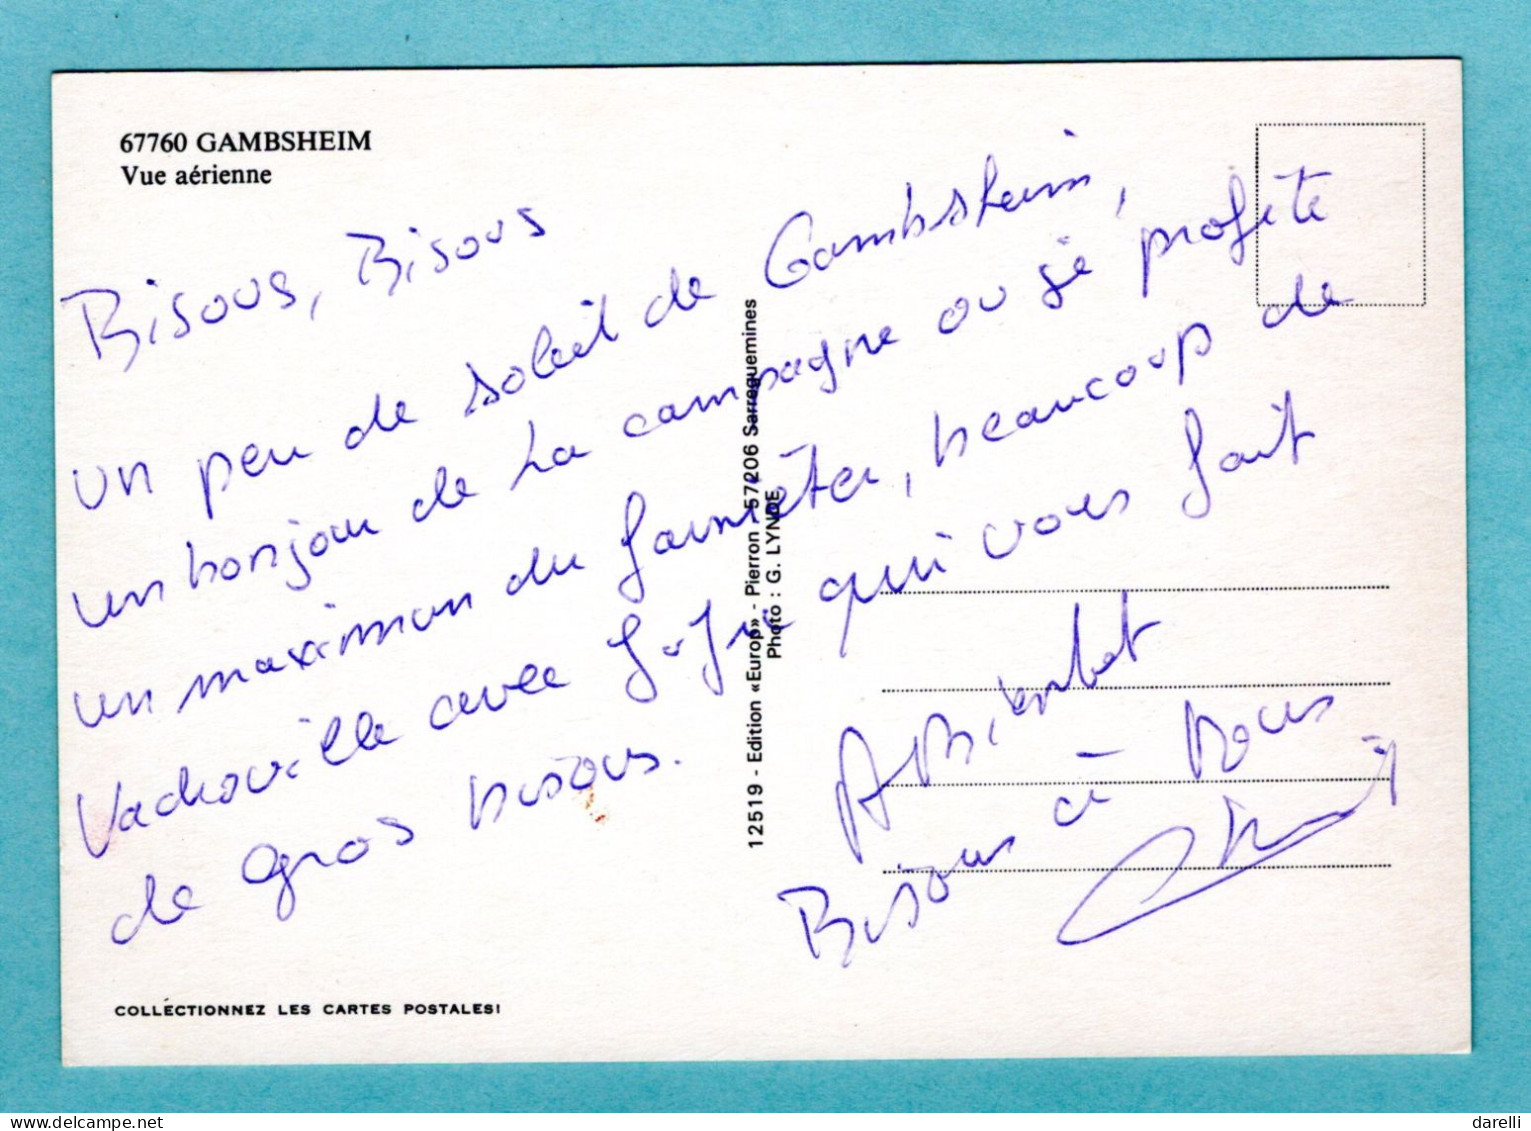 67760 GAMBSHEIM
Vue aérienne
Bisous, Bisous
un peu de soleil de Gambsheim,
un bonjour de la campagne ou je profite
un maximum du farniêter, beaucoup de
Vadrouille avec qui vous fait
de gros bisous.
A Bientot
Bisous à Vous
12519 - Edition «Europ» - Pierron - 57206 Sarreguemines
Photo : G. LYNDE
COLLECTIONNEZ LES CARTES POSTALES!
darelli